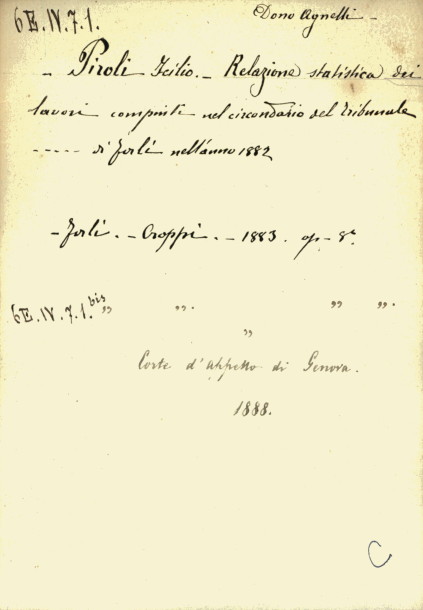 6E.IV.7.1.
Dono Agnelli -
- Piroli Icilio. - Relazione statistica dei
lavori compiuti nel circondario del tribunale
----- di Forlì nell'anno 1882
- Forlì. - Croppi. - 1883. op - 8°.
6E.IV.7.1.bis „ „. „ „.
„
Corte d'appello di Genova.
1888.
C